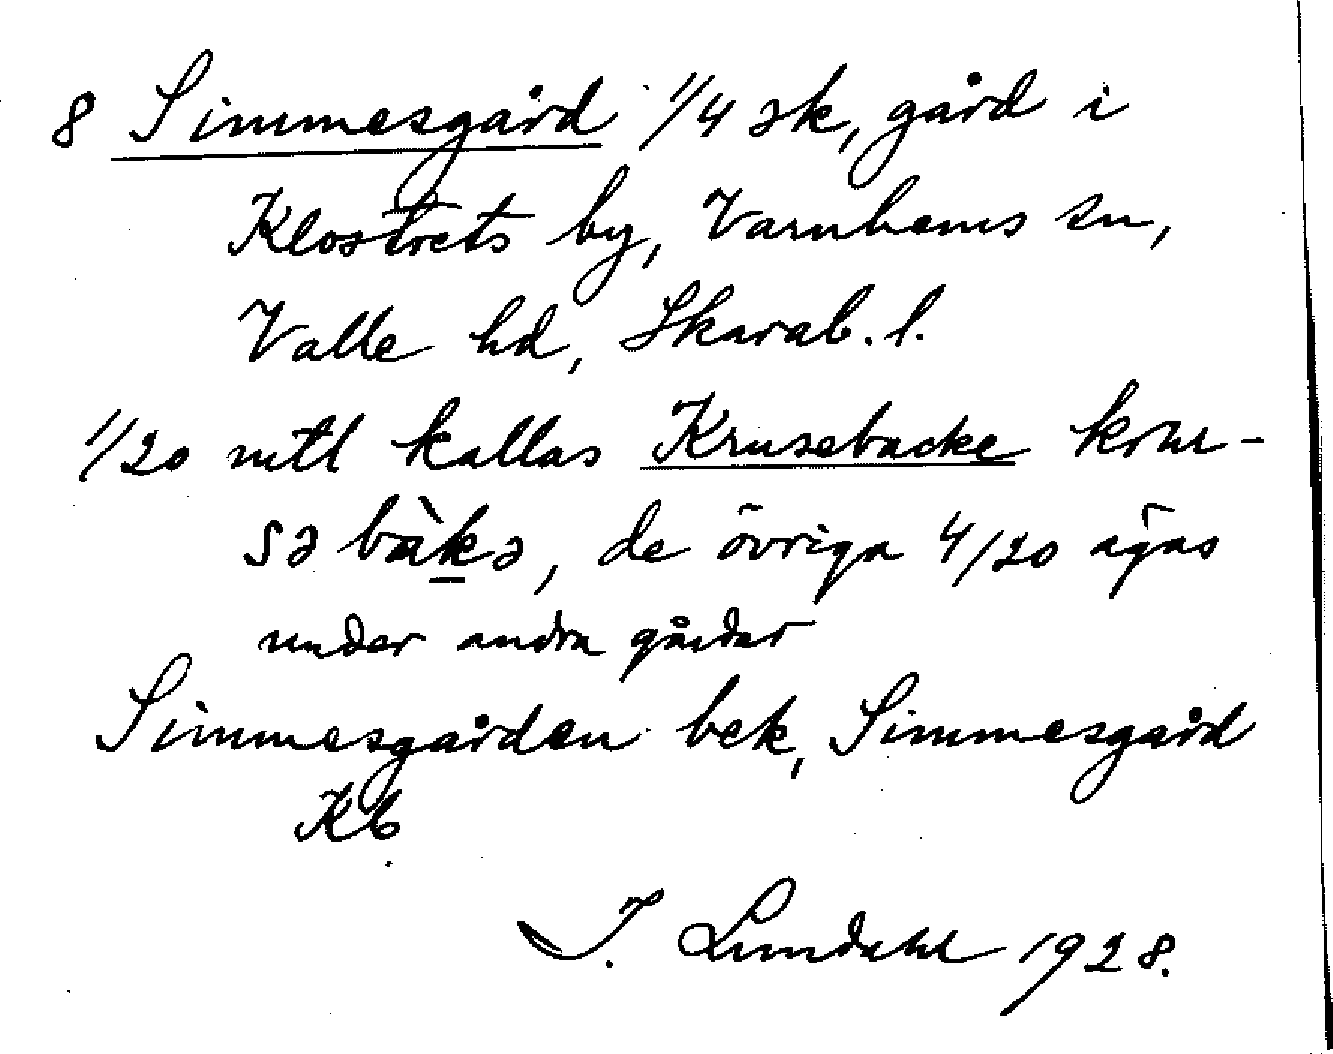 8 Simmesgård 1/4 sk, gård i
Klostrets by, Varnhems sn,
Valle hd, Skarab. l.
1/20 mtl kallas Krusebacke krɯ-
sə bàkə, de övriga 4/20 ägas
under andra gårdar
Simmesgården bek, Simmesgård
Kb
I. Lundahl 1928.